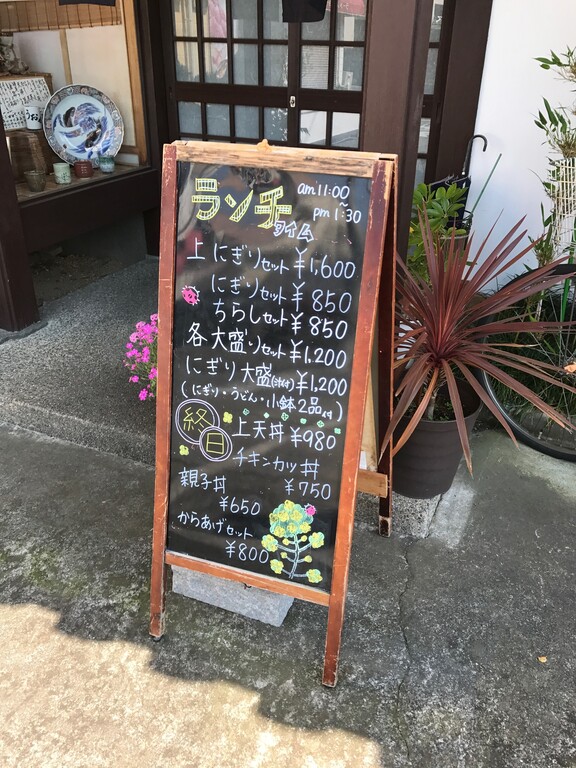 ランチ am 11:00
〜
タイム pm 1:30
上 にぎりセット ¥1,600
にぎりセット ¥850
ちらしセット ¥850
各 大盛りセット ¥1,200
にぎり大盛(汁付) ¥1,200
(にぎり・うどん・小鉢2品付)
終日
上天丼 ¥980
チキンカツ丼
¥750
親子丼
¥650
からあげセット
¥800